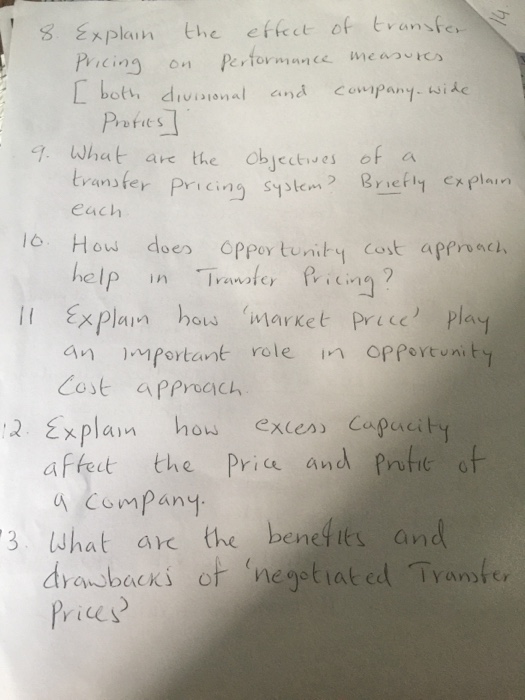 8. Explain the effect of transfer
Pricing on Performance measures
[ both divisional and company-wide
Profits]
9. What are the Objectives of a
transfer Pricing system? Briefly explain
each
10. How does opportunity cost approach
help in Transfer Pricing?
11 Explain how 'market Price' play
an important role in opportunity
Cost approach.
12. Explain how excess Capacity
affect the Price and Profit of
a company.
13. What are the benefits and
drawbacks of 'negotiated Transfer
Prices'